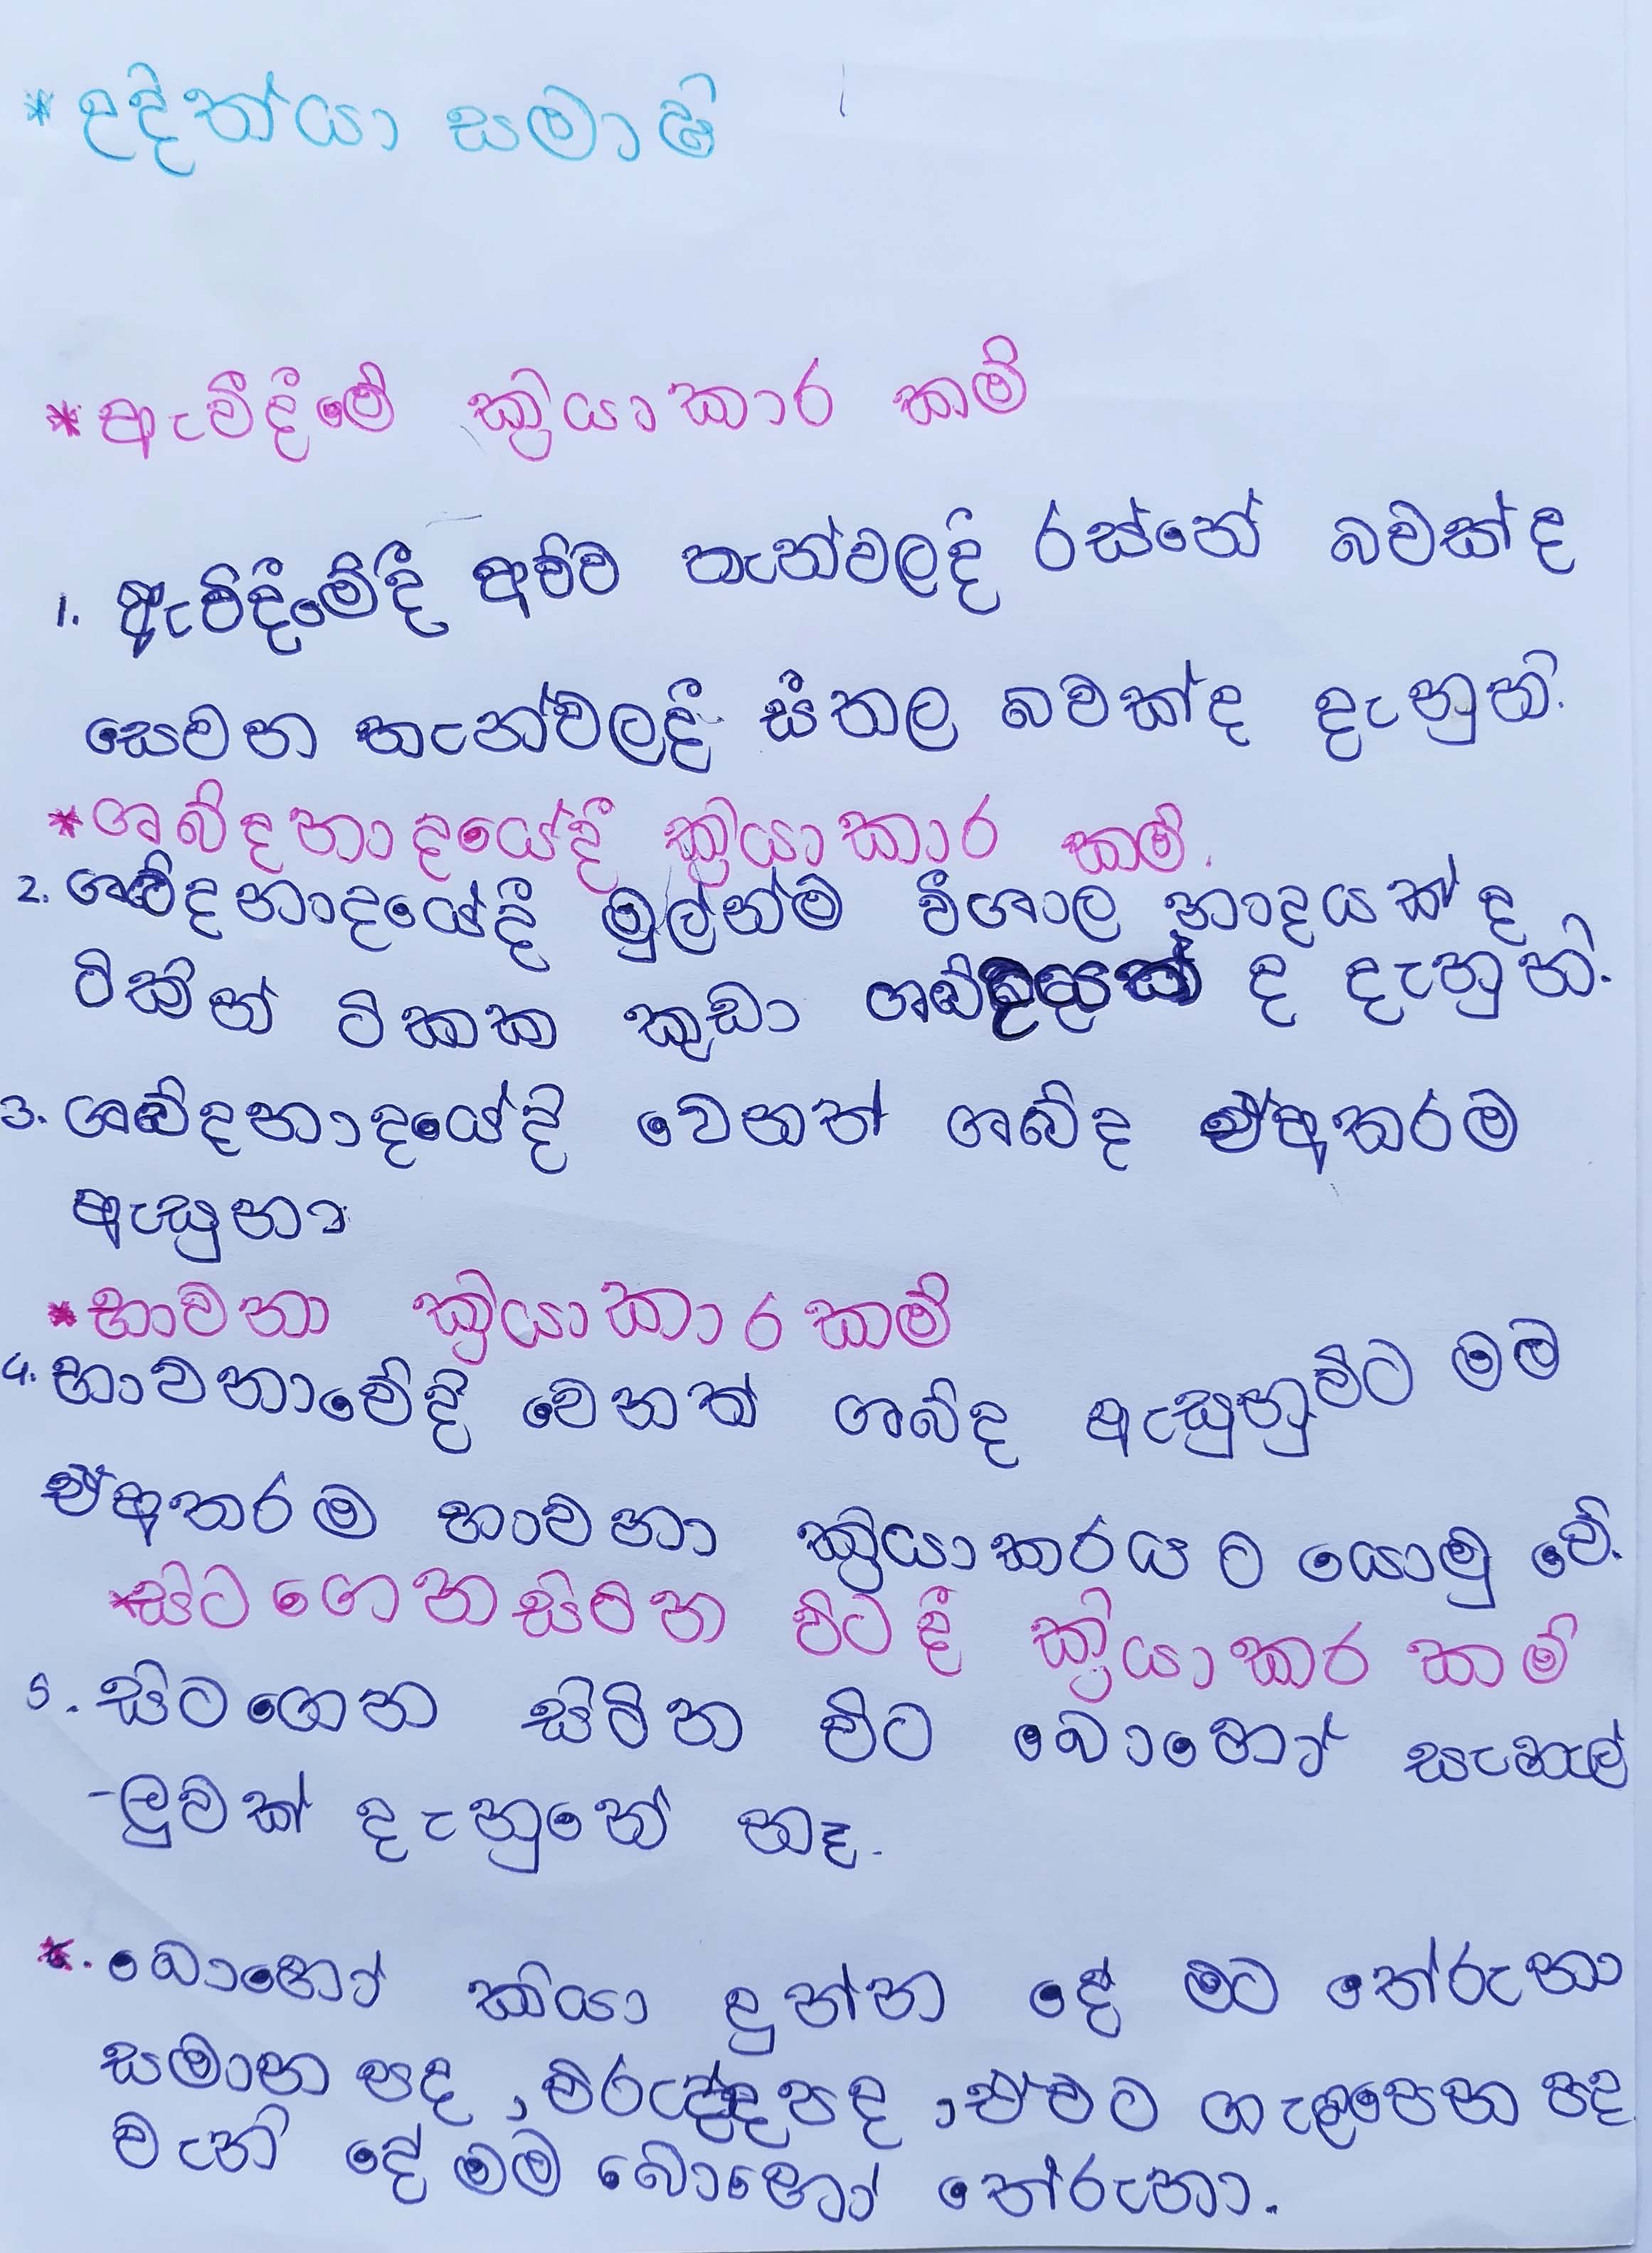 * දිදින්යා සමාෂි
* ඇවිදීමේ ක්‍රියාකාර කම්
1. ඇවිදීමේදී අව්ව තැන්වලදි රස්නේ බවක්ද
සෙවන තැන්වලදී සීතල බවක්ද දැනුනි.
* ශබ්දනාදයේදී ක්‍රියාකාර කම්.
2. ශබ්දනාදයේදී මුලින්ම විශාල නාදයක් ද
ටිකින් ටිකක කුඩා ශබ්දයක් ද දැනුනි.
3. ශබ්දනාදයේදි වෙනත් ශබ්ද ඒඅතරම
ඇසුනා
* භාවනා ක්‍රියාකාරකම්
4. භාවනාවේදි වෙනත් ශබ්ද ඇසුනුවිට මම
ඒඅතරම භාවනා ක්‍රියාකරයට යොමු වේ.
* සිටගෙන සිටින විටදී ක්‍රියාකර කම්
5. සිටගෙන සිටින විට බොහෝ සැහැල්
-ලුවක් දැනුනේ නෑ.
*. බොහෝ කියා දුන්න දේ මට තේරුනා
සමාන පද, විරුද්දපද, ඒවට ගැලපෙන පද
වැනි දේ මම බොහෝ තේරුනා.